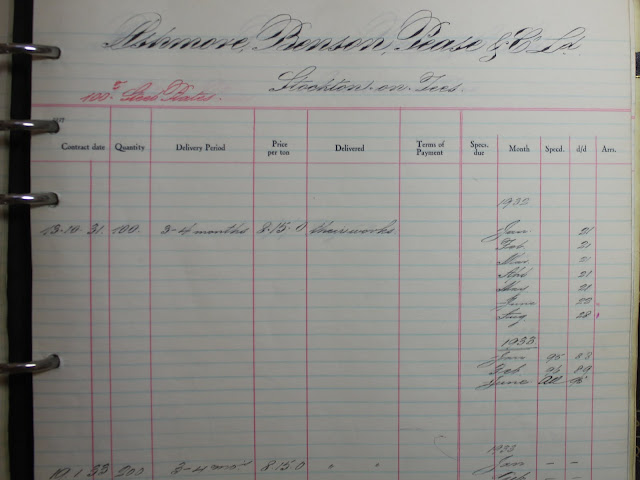 Ashmore, Benson, Pease & Co Ld.
Stockton-on-Tees.
100 T Steel Plates.
Contract date Quantity Delivery Period Price per ton Delivered Terms of Payment Specs. due Month Specd. d/d Arrs.
1932
13.10.31. 100. 3-4 months 8.15.0 Your works. Jan. 21
Feb. 21
Mar. 21
Apl 21
May. 21
June
Aug. 28
1933
Jan 95 83
Feb. 89
June All
1933
10.1.33 200 3-4 mos 8.15.0 " " Jan – –
Feb – –